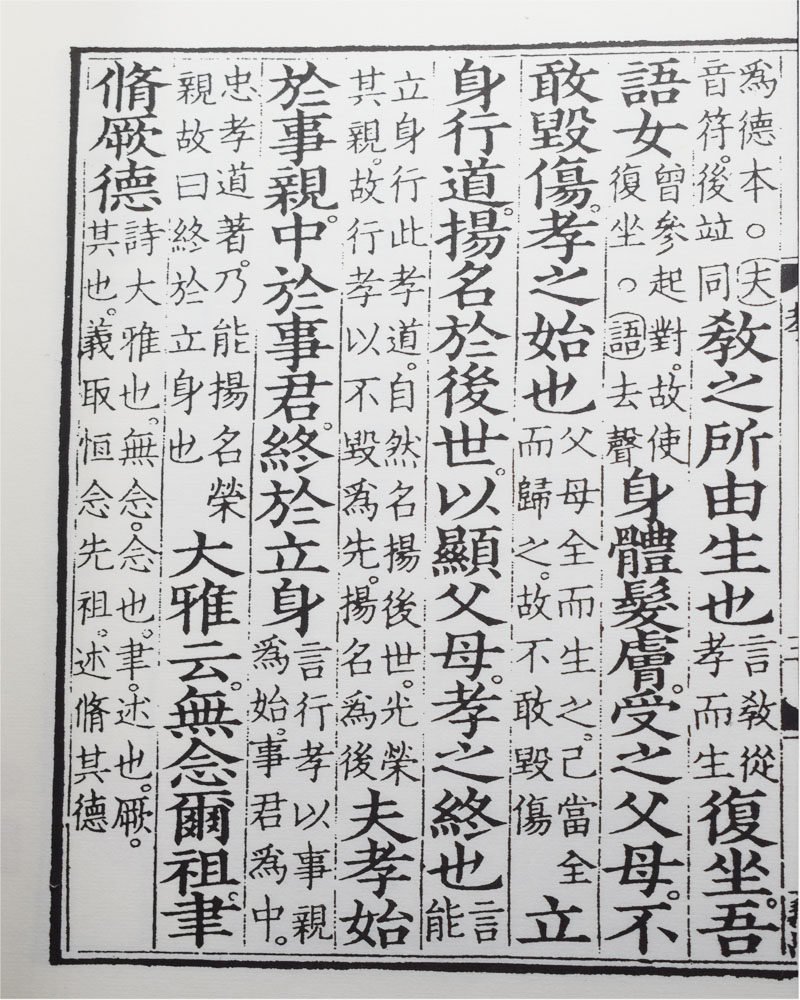 爲德本○夫音符。後竝同教之所由生也言教從孝而生復坐。吾
語女曾參起對。故使復坐○語去聲身體髮膚。受之父母。不
敢毀傷。孝之始也父母全而生之。己當全而歸之。故不敢毀傷立
身行道。揚名於後世。以顯父母。孝之終也言能
立身行此孝道。自然名揚後世。光榮其親。故行孝以不毀爲先。揚名爲後夫孝始
於事親。中於事君。終於立身言行孝以事親爲始。事君爲中。
忠孝道著。乃能揚名榮親故曰終於立身也大雅云。無念爾祖。聿
脩厥德詩大雅也。無念。念也。聿。述也。厥。其也。義取恒念先祖。述脩其德